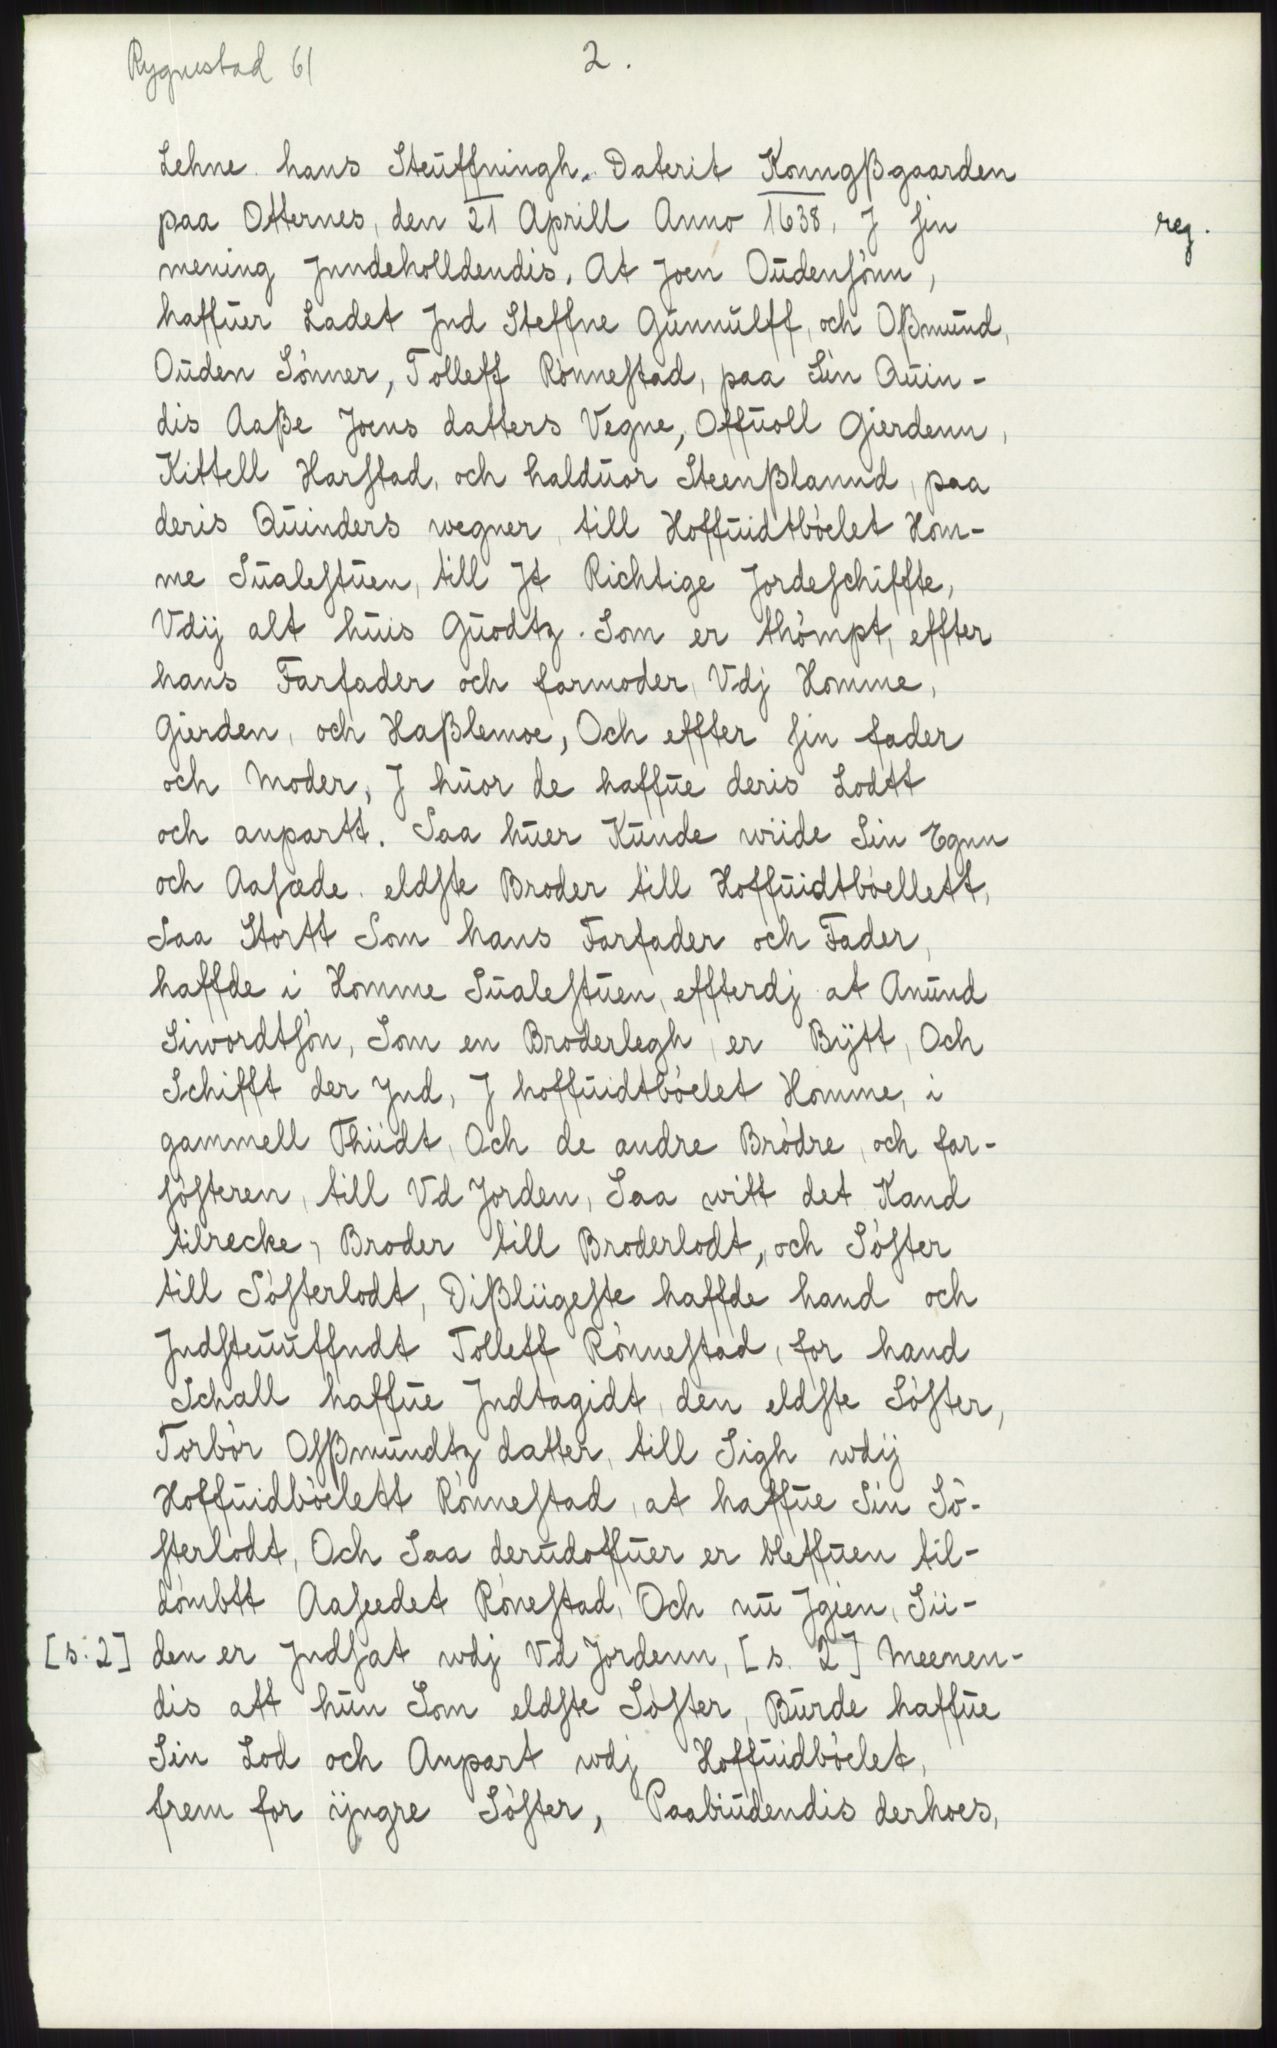 Rygnestad 61
2.
Lehne hans Steuffningh. Daterit Konngßgaarden
paa Otternes, den 21 Aprill Anno 1638, J ſin
reg.
mening Jnndeholldendis. At Joen Oudenſönn,
haffuer Ladet Jnd Steffne Gunnulff, och Oßmund,
Ouden Sönner, Tolleff Rönneſtad, paa Sin Quin-
dis Aaße Joens datters Vegne, Offuoll Gierdenn,
Kittell Harſtad, och halduor Steenßlannd, paa
deris Quinders wegner, till Hoffuidtböelet Hom-
me Sualeſtuen, till Jt Richtige Jordeſchiffte,
Vdij alt huis Guodtz. Som er thömpt, effter
hans Farfader och farmoder, Vdj Homme,
Gierden, och Haßlemoe, Och effter ſin fader
och Moder, J huor de haffue deris Lodtt
och anpartt. Saa huer Kunde wiide Sin Egnn
och Aaſæde. eldſte Broder till Hoffuidtböellett,
Saa Stortt Som hans Farfader och Fader,
haffde i Homme Sualeſtuen, effterdj at Anund
Siwordtſön, Som en Broderlegh, er Bÿtt, Och
Schifft der Jnd, J hoffuidtböelet Homme, i
gammell Thiidt, Och de andre Brödre, och far-
ſöſteren, till Vd Jorden, Saa witt det Kand
tilrecke, Broder till Broderlodt, och Söſter
till Söſterlodt, Dißliigeſte haffde hand och
Jndſteuuffndt Tolleff Rönneſtad, for hand
Schall haffue Jndtagidt, den eldſte Söſter,
Torbör Oſßmundtz datter, till Sigh wdij
Hoffuidböelett Rönneſtad, at haffue Sin Sö-
ſterlodt, Och Saa derudoffuer er bleffuen til-
dömbtt Aaſeedet Röneſtad, Och nu Jgien, Sii-
[s. 2] den er Jndſat wdj Vd Jordenn, [s. 2] Meenen-
dis att hun Som eldſte Söſter, Burde haffue
Sin Lod och Anpart wdj Hoffuidböelet,
frem for ÿngre Söſter, Paabiudendis derhoes,